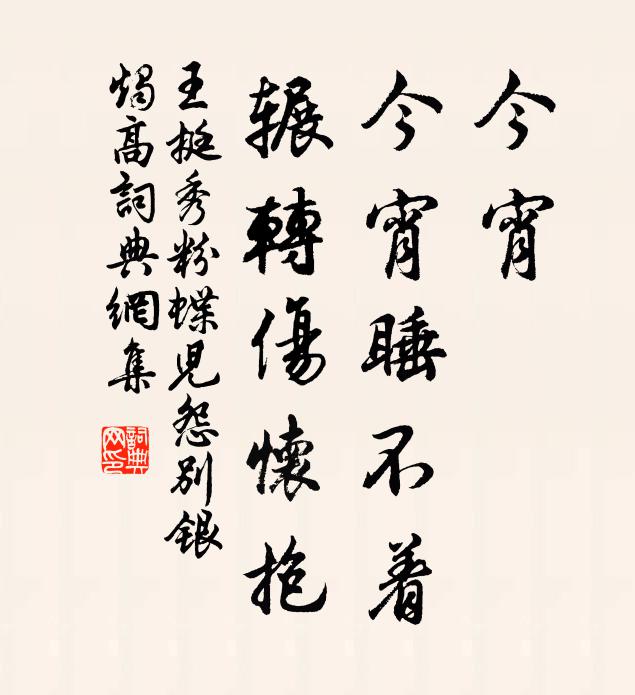 今宵
今宵睡不着
辗轉傷懷抱
王挺秀粉蝶児怨别銀
燭高詞典網集
詞典网印